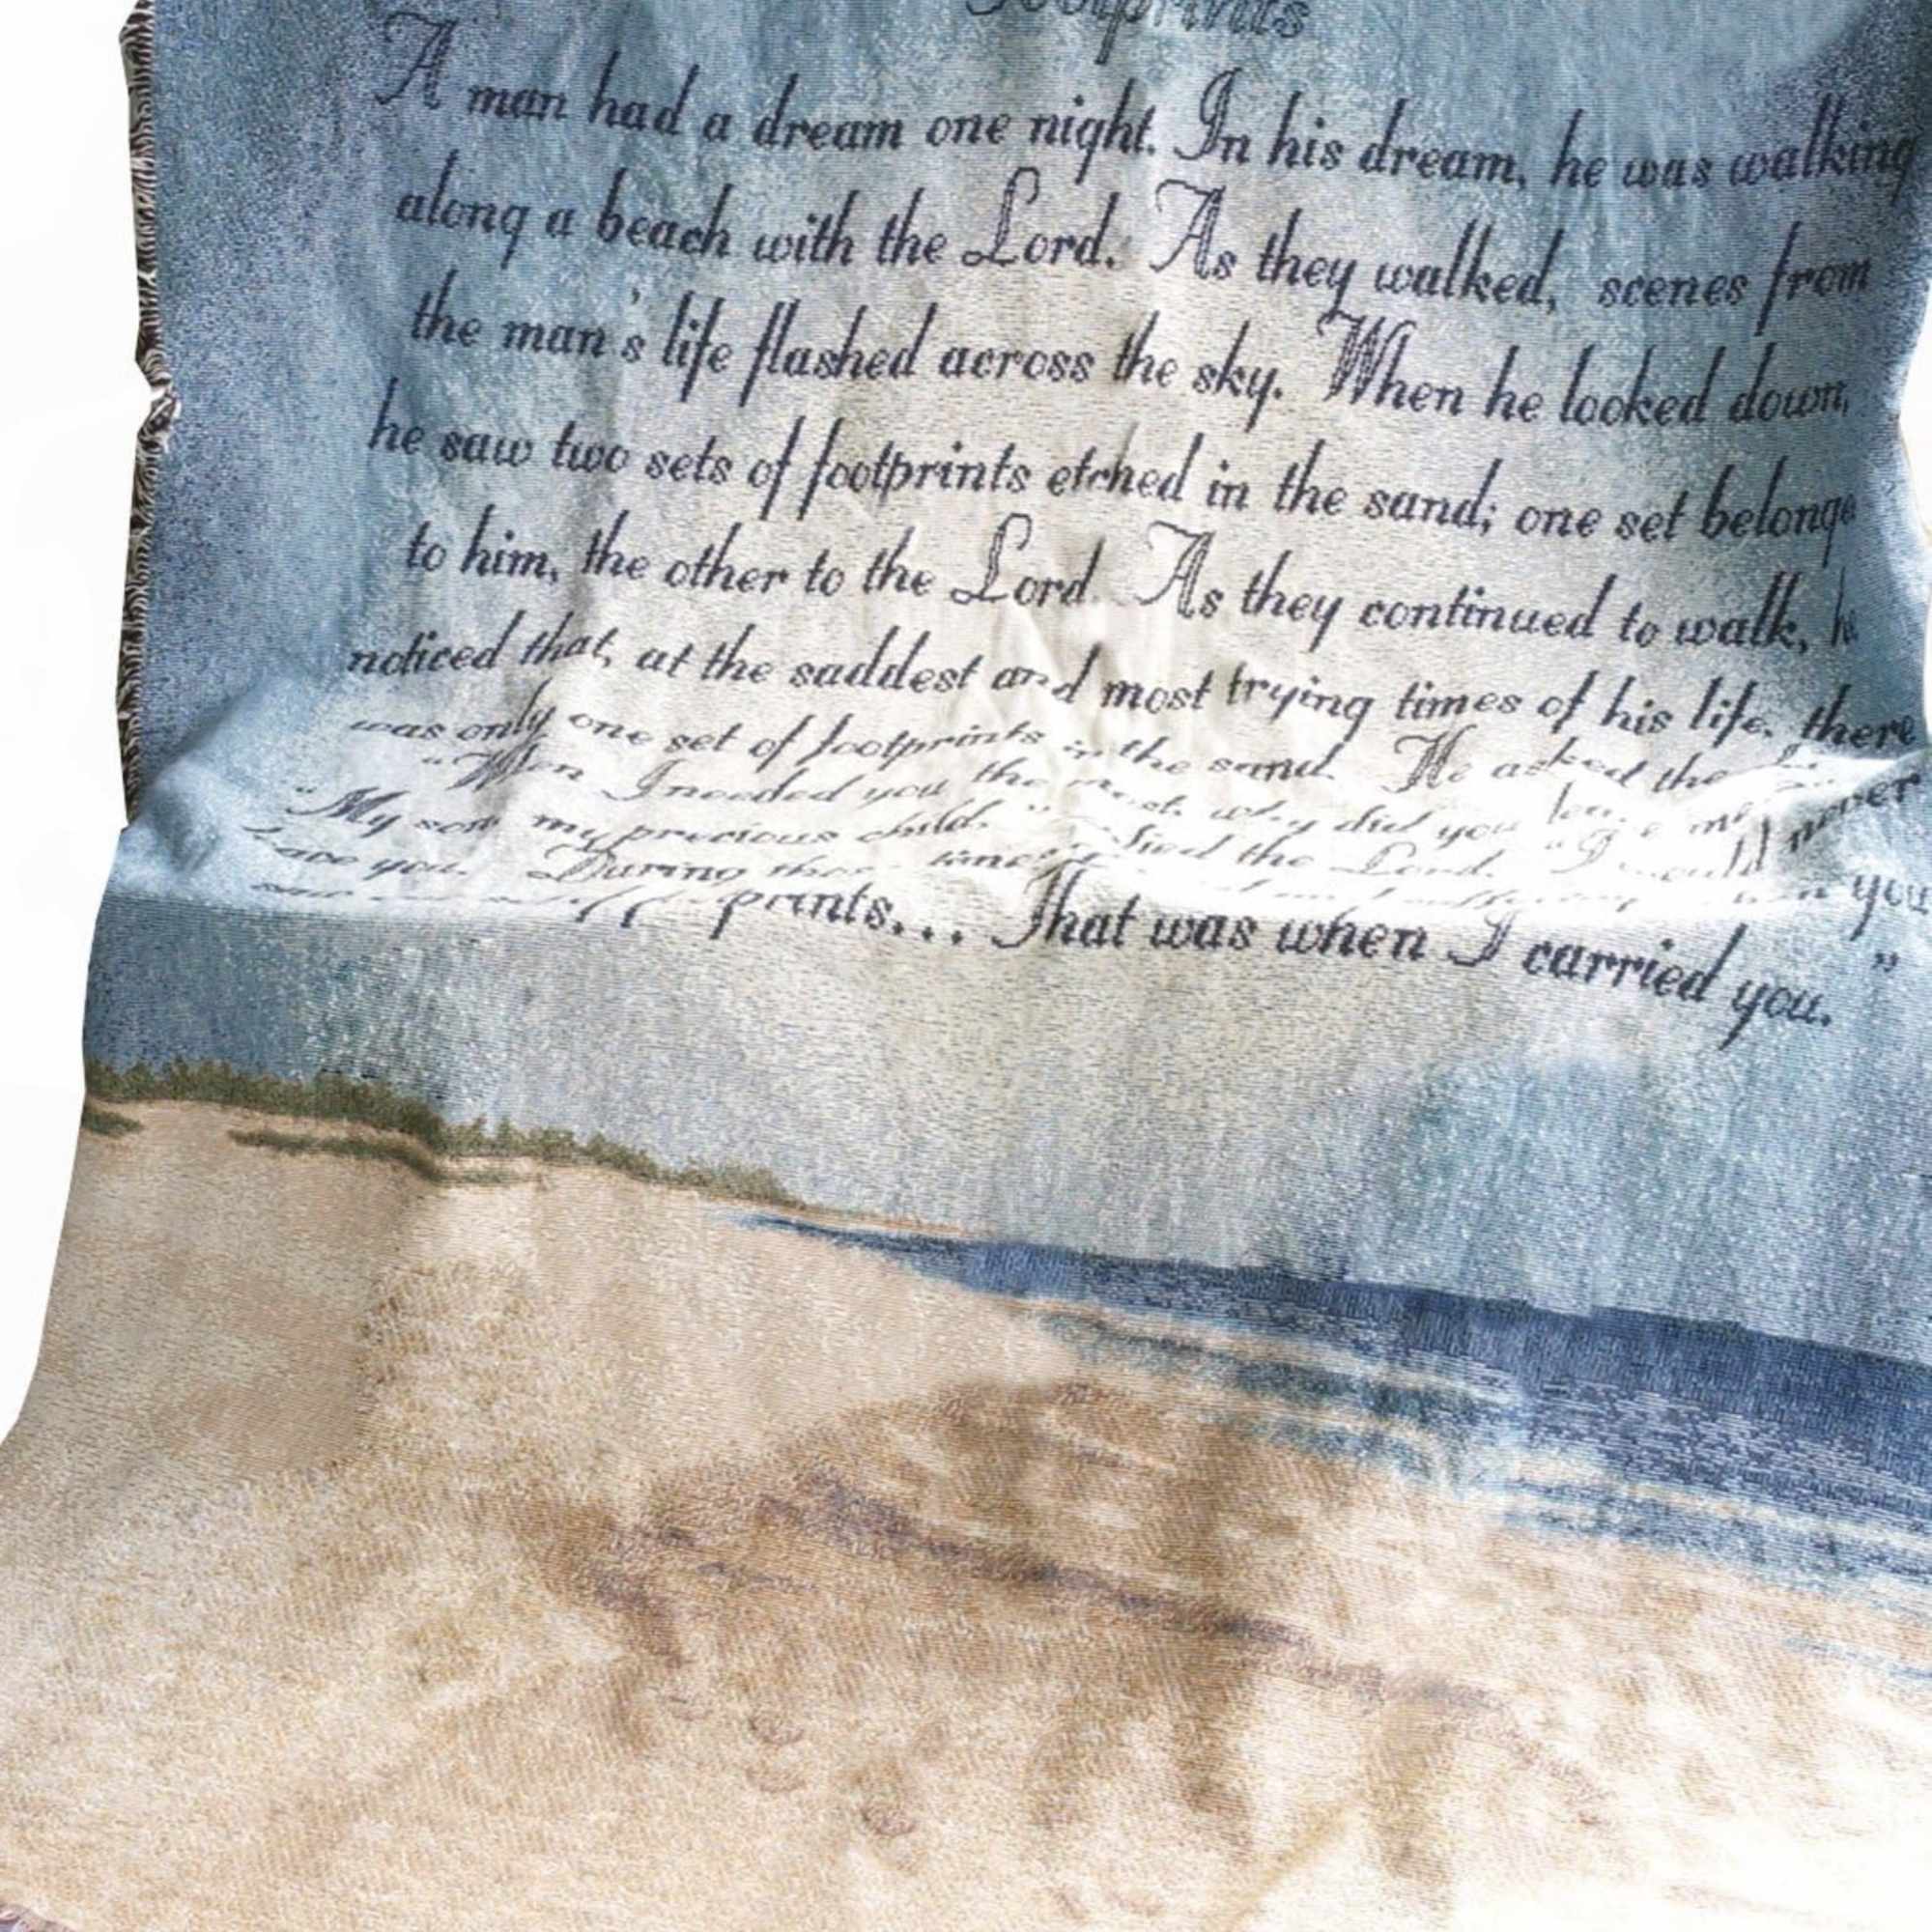 Footprints
A man had a dream one night. In his dream, he was walking
along a beach with the Lord. As they walked, scenes from
the man's life flashed across the sky. When he looked down,
he saw two sets of footprints etched in the sand; one set belonge
to him, the other to the Lord. As they continued to walk, he
noticed that, at the saddest and most trying times of his life, there
was only one set of footprints in the sand. He asked the
"When I needed you the most, why did you leave me
"My son, my precious child," the Lord. "I would never
leave you. During those times when you
prints... That was when I carried you."